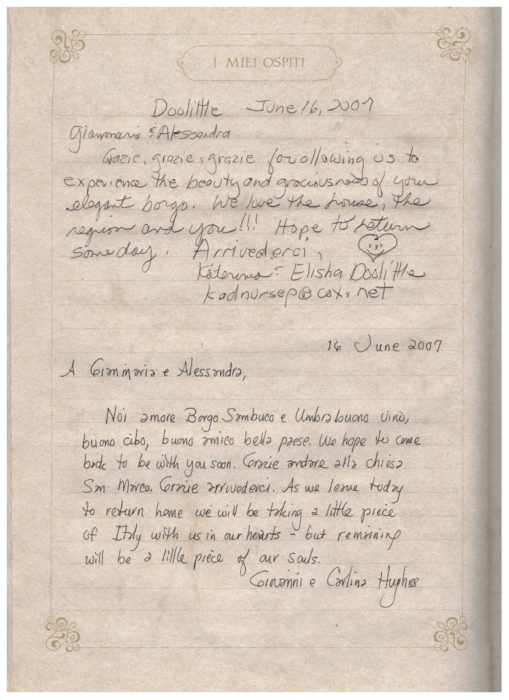 I MIEI OSPITI
Doolittle June 16, 2007
Gianmaria & Alessandra
Grazie, grazie, grazie for allowing us to
experience the beauty and graciousness of your
elegant borgo. We love the house, the
region and you!!! Hope to return
some day. Arrivederci,
Elisha Doolittle
kadnursep@cox.net
16 June 2007
A Gianmaria e Alessandra,
Noi amore Borgo Sambuco e Umbra buono vino,
buono cibo, buono amico bella paese. We hope to come
back to be with you soon. Grazie andare alla chiesa
San Marco. Grazie arrivoderci. As we leave today
to return home we will be taking a little piece
of Italy with us in our hearts - but remaining
will be a little piece of our souls.
Giovanni e Carlina Hughes